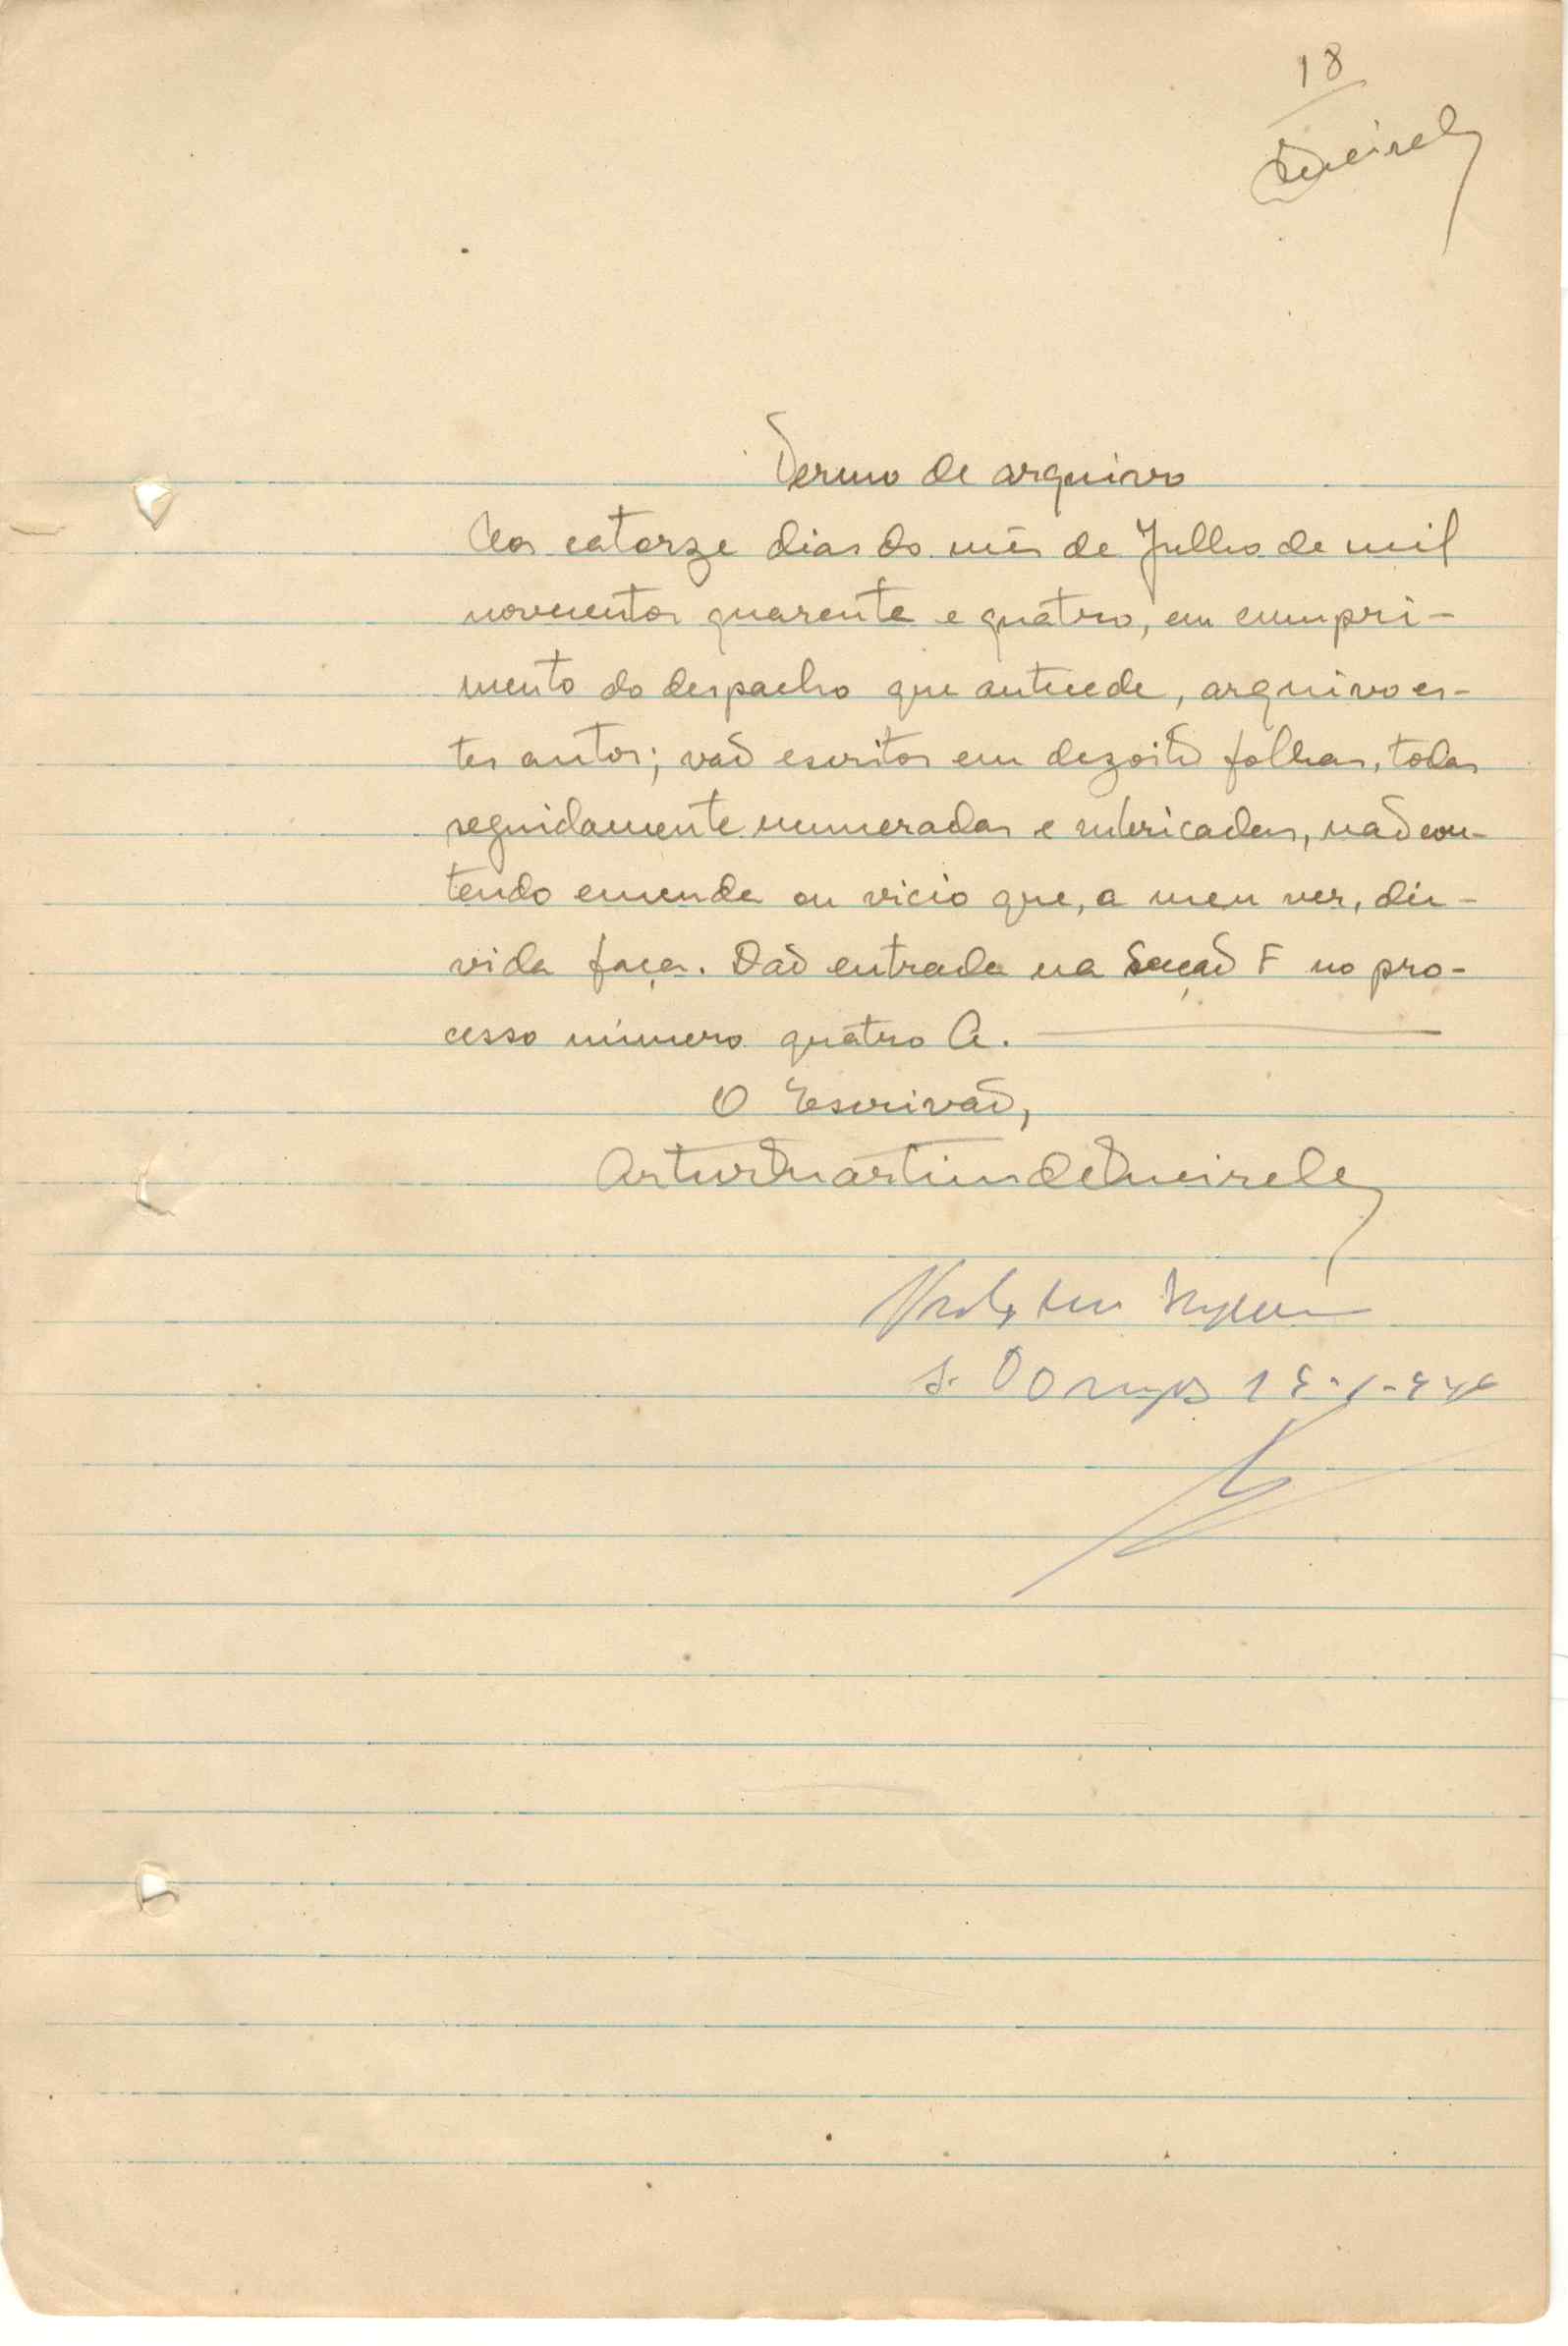 18
Termo de arquivo
Aos catorze dias do mês de Julho de mil
novecentos quarenta e quatro, em cumpri-
mento do despacho que antecede, arquivo es-
tes autos; vaõ escritos em dezoito folhas, todas
seguidamente numeradas e rubricadas, naõ con-
tendo emenda ou vicio que, a meu ver, dú-
vida faça. Daõ entrada na Secçaõ F no pro-
cesso número quatro A.
O Escrivaõ,
Artur Martins de